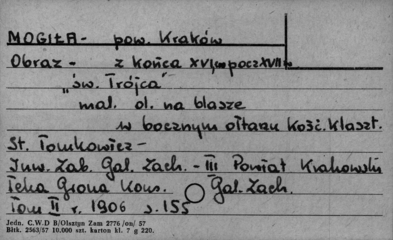 MOGIŁA - pow. Kraków
Obraz - z końca XVI, wzgl. pocz XVII w
„św. Trójca"
mal. ol. na blasze
w bocznym ołtarzu Kość. Klaszt.
St. Tomkowicz -
Inw. Zab. Gal. Zach. - III Powiat Krakowski
Teka Grona Kons. Gal. Zach.
Tom II r. 1906 s. 155
Jedn. C.W.D B/Olsztyn Zam 2776/on/ 57
Bltk. 2563/57 10.000 szt. karton kl. 7 g 220.